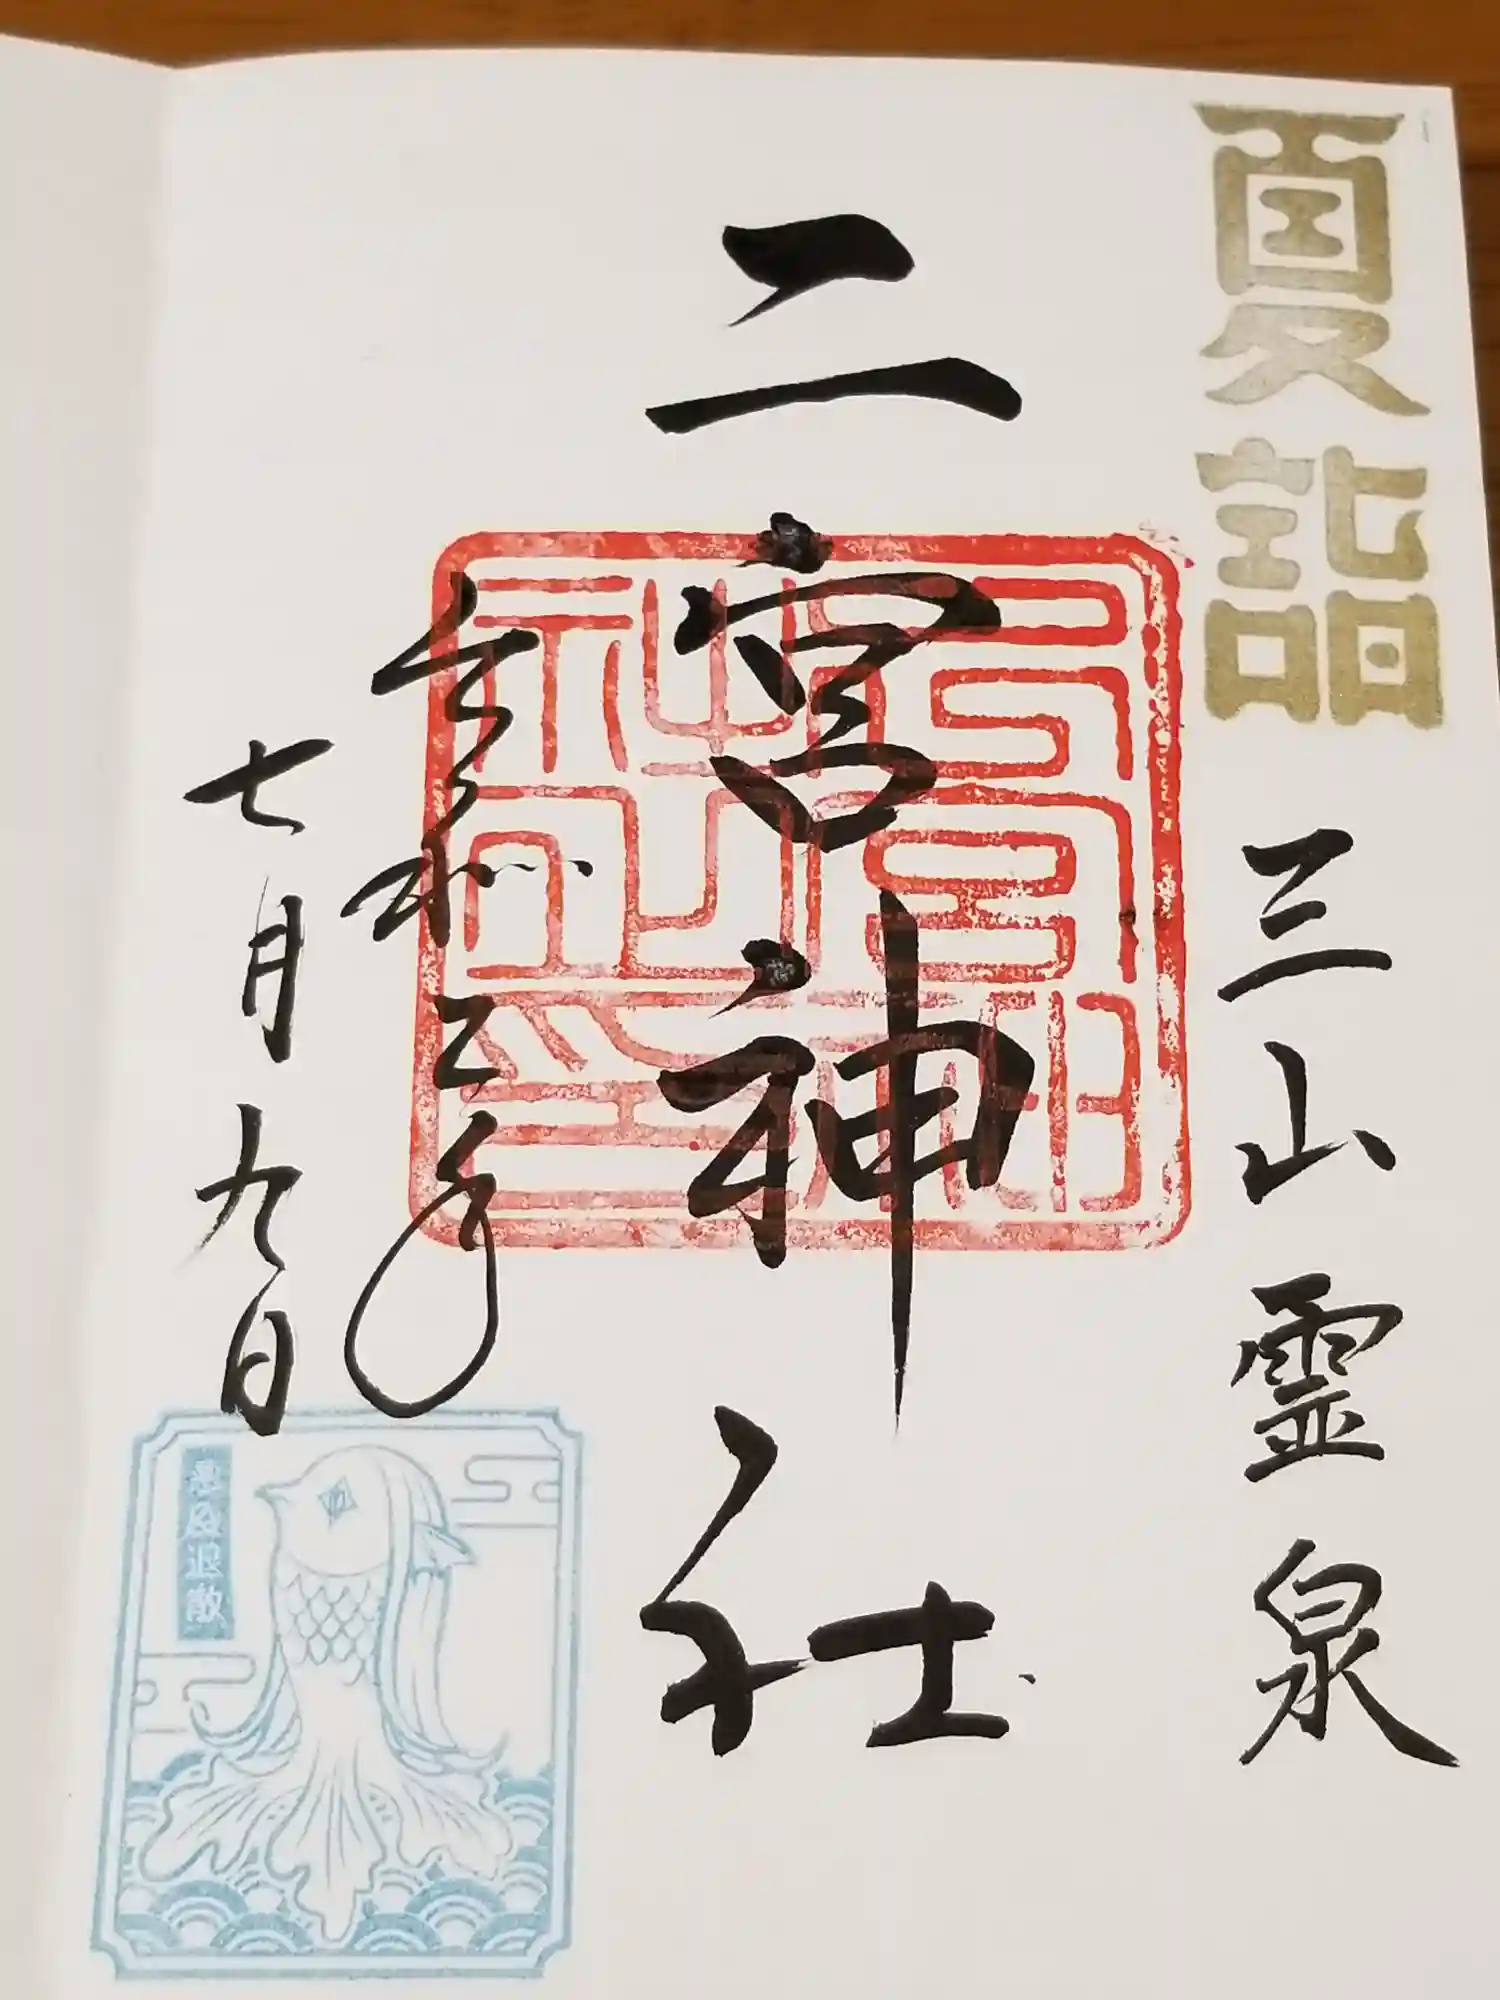 夏詣
三山霊泉
二宮神社
令和二年
七月九日
悪疫退散